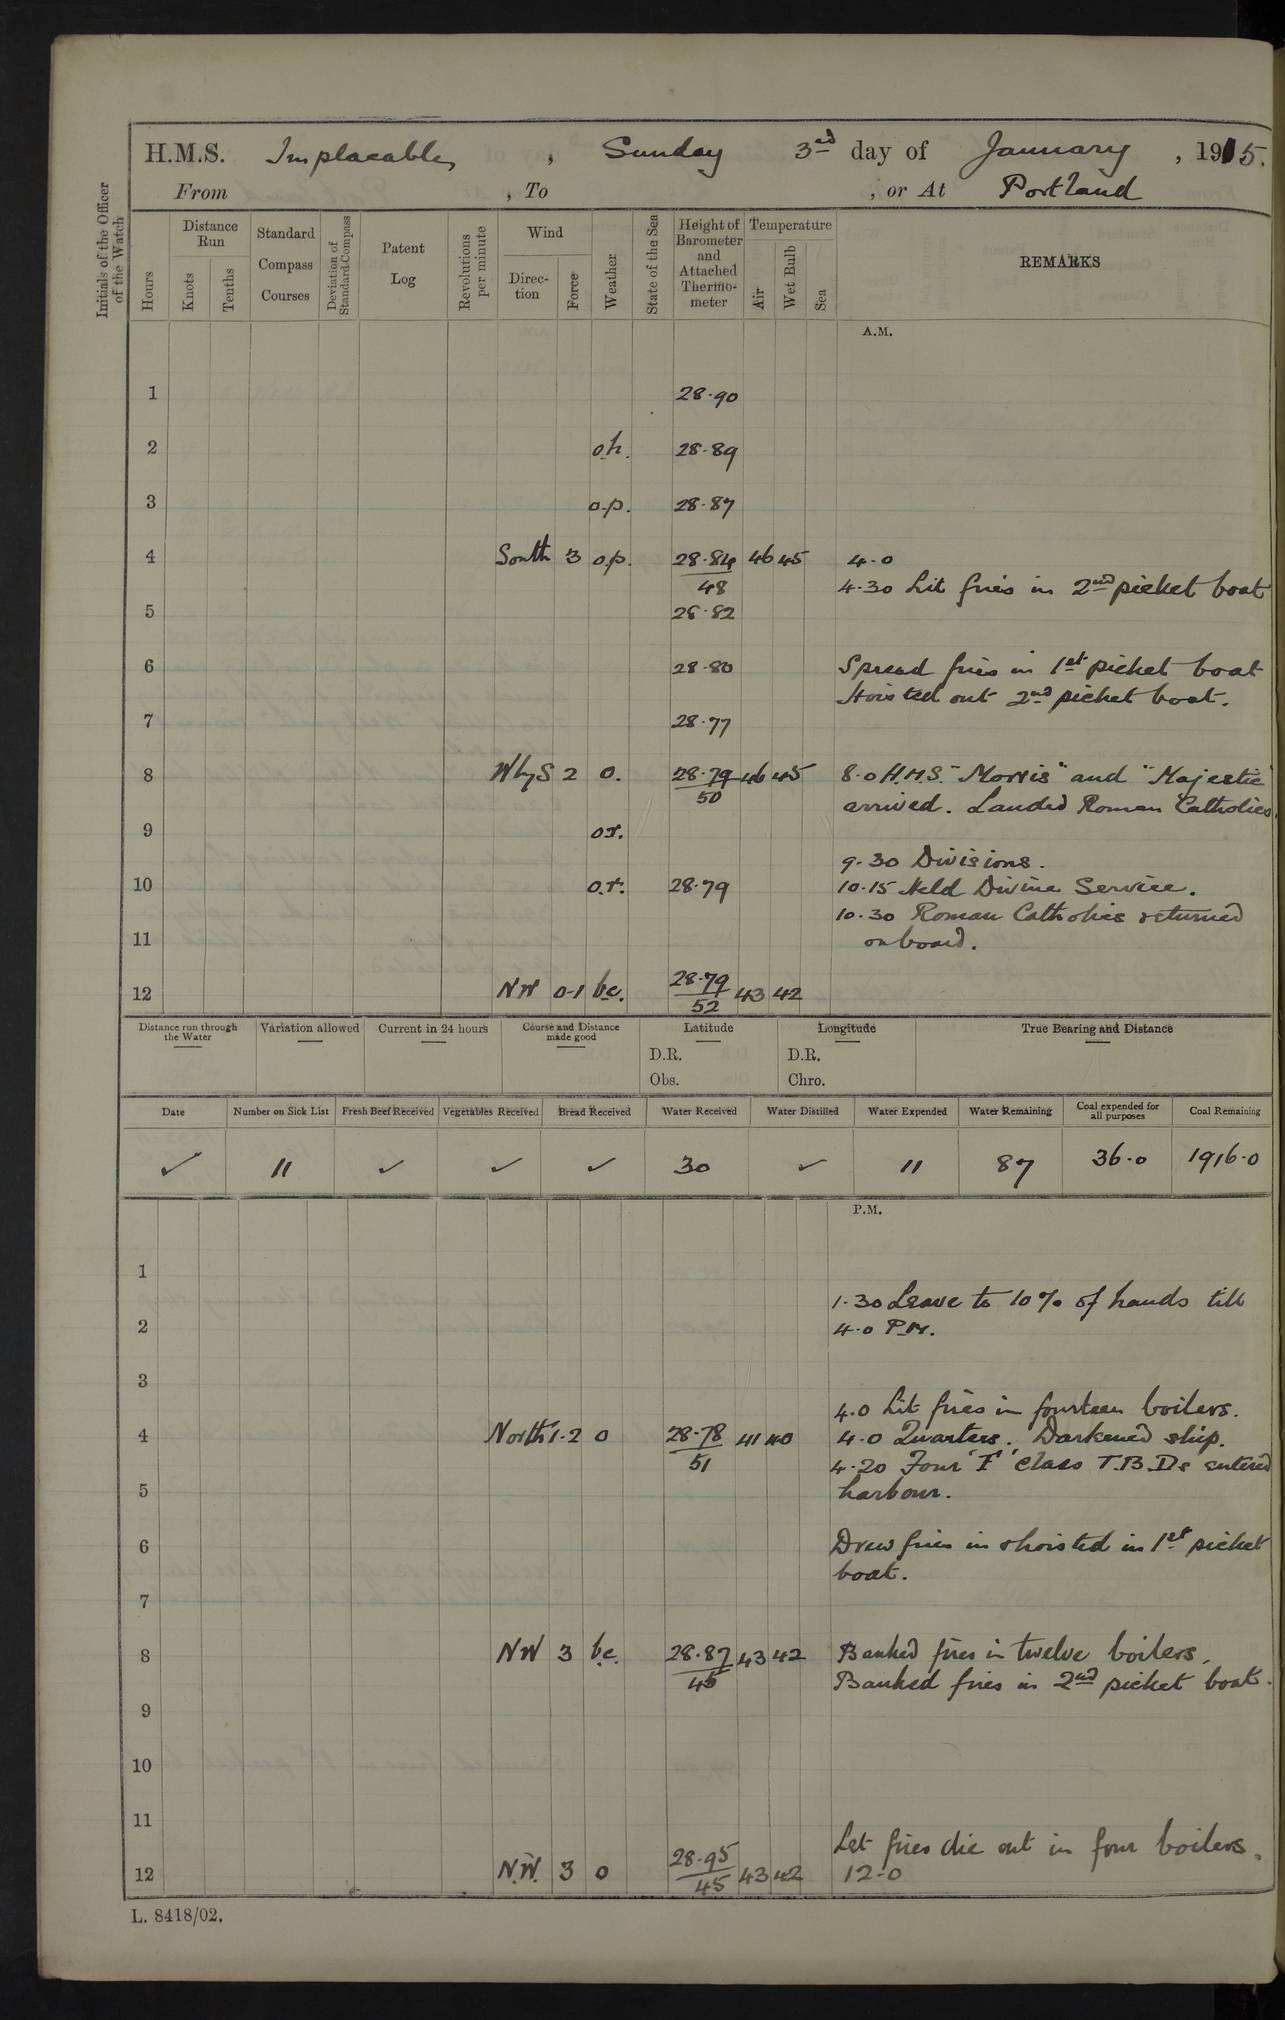 H.M.S. Implacable, Sunday 3rd day of January, 1915.
From , To , or At Portland
Initials of the Officer of the Watch
Hours
Distance Run
Knots
Tenths
Standard Compass Courses
Deviation of Standard Compass
Patent Log
Revolutions per minute
Wind
Direction
Force
Weather
State of the Sea
Height of Barometer and Attached Thermometer
Temperature
Air
Wet Bulb
Sea
REMARKS
A.M.
1 28.90
2 o.h. 28.89
3 o.p. 28.87
4 South 3 o.p. 28.84 46 45 4.0
48 4.30 Lit fires in 2nd picket boat
5 28.82
6 28.80 Spread fires in 1st picket boat
Hoisted out 2nd picket boat.
7 28.77
8 W by S 2 o. 28.79 46 45 8.0 H.M.S. "Morris" and "Majestic"
50 arrived. Landed Roman Catholics.
9 o.r.
9.30 Divisions.
10 o.r. 28.79 10.15 Held Divine Service.
10.30 Roman Catholics returned
11 onboard.
12 NW 0-1 b.c. 28.79 43 42
52
Distance run through the Water
Variation allowed
Current in 24 hours
Course and Distance made good
Latitude
D.R.
Obs.
Longitude
D.R.
Chro.
True Bearing and Distance
Date Number on Sick List Fresh Beef Received Vegetables Received Bread Received Water Received Water Distilled Water Expended Water Remaining Coal expended for all purposes Coal Remaining
✓ 11 ✓ ✓ ✓ 30 ✓ 11 87 36.0 1916.0
P.M.
1
1.30 Leave to 10% of hands till
2 4.0 P.M.
3
4.0 Lit fires in fourteen boilers.
4 North 1-2 o 28.78 41 40 4.0 Quarters. Darkened ship.
51 4.20 Four 'F' class T.B.Ds entered
5 harbour.
6 Drew fires in & hoisted in 1st picket
boat.
7
8 NW 3 b.c. 28.87 43 42 Banked fires in twelve boilers.
46 Banked fires in 2nd picket boat.
9
10
11
Let fires die out in four boilers.
12 N.W. 3 o 28.95 43 42 12-0
45
L. 8418/02.